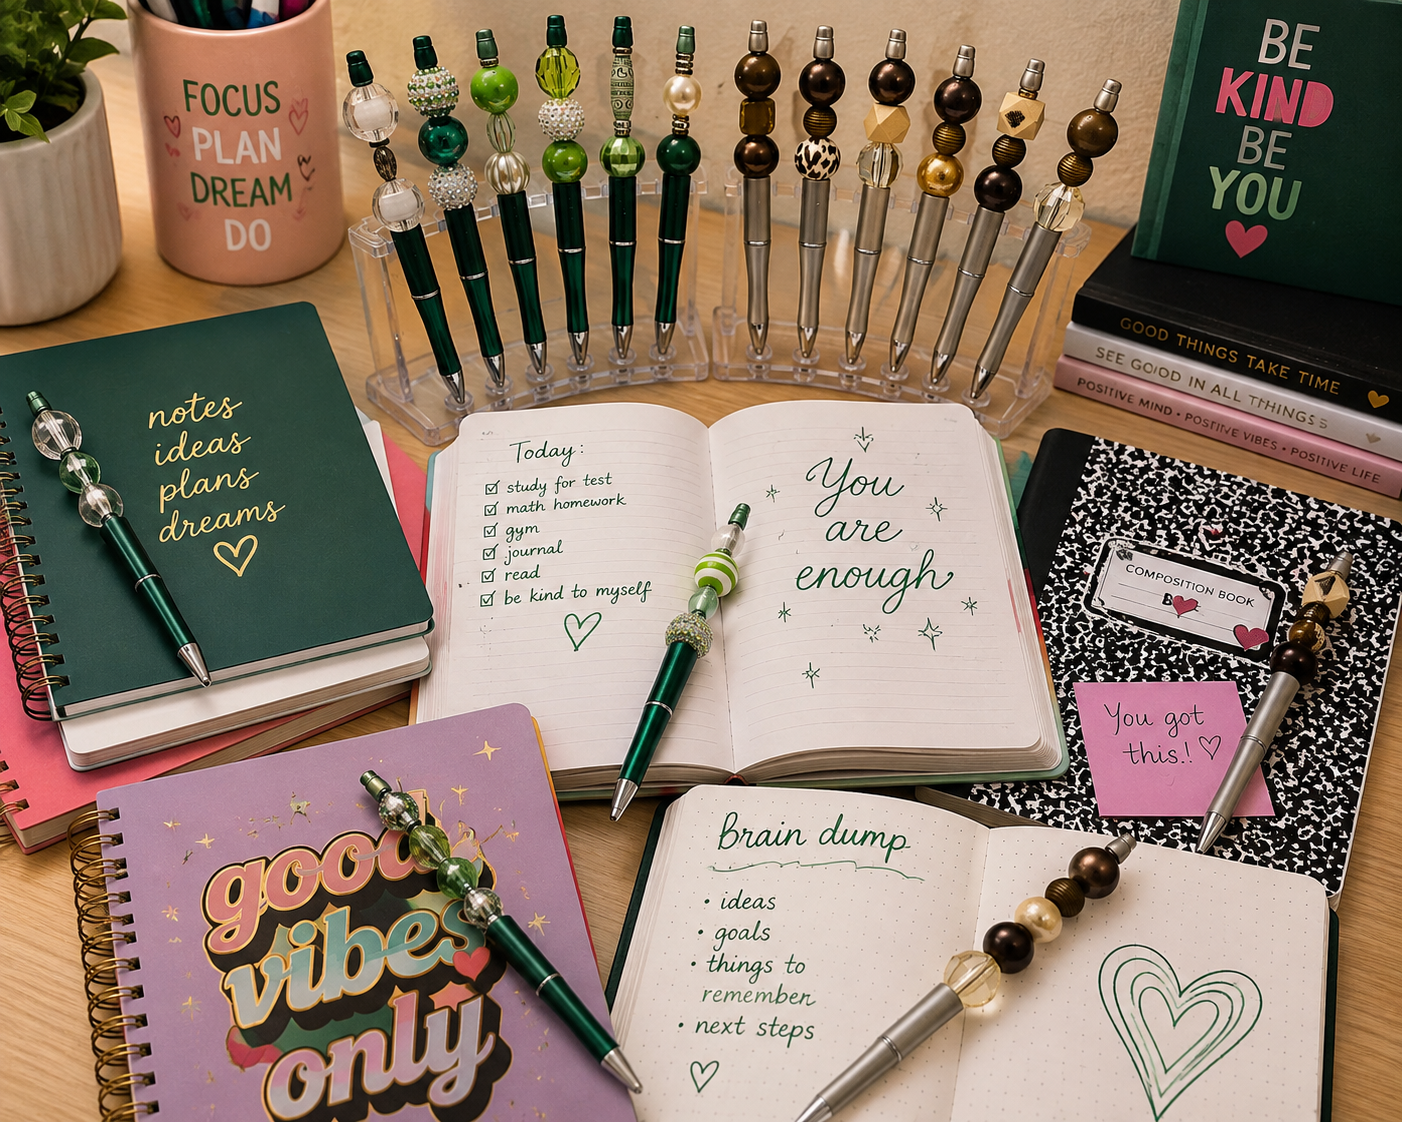 FOCUS
PLAN
DREAM
DO
BE
KIND
BE
YOU
GOOD THINGS TAKE TIME
SEE GOOD IN ALL THINGS
POSITIVE MIND • POSITIVE VIBES • POSITIVE LIFE
notes
ideas
plans
dreams
Today:
study for test
math homework
gym
journal
read
be kind to myself
You
are
enough
COMPOSITION BOOK
You got
this!
good
vibes
only
Brain dump
• ideas
• goals
• things to
remember
• next steps